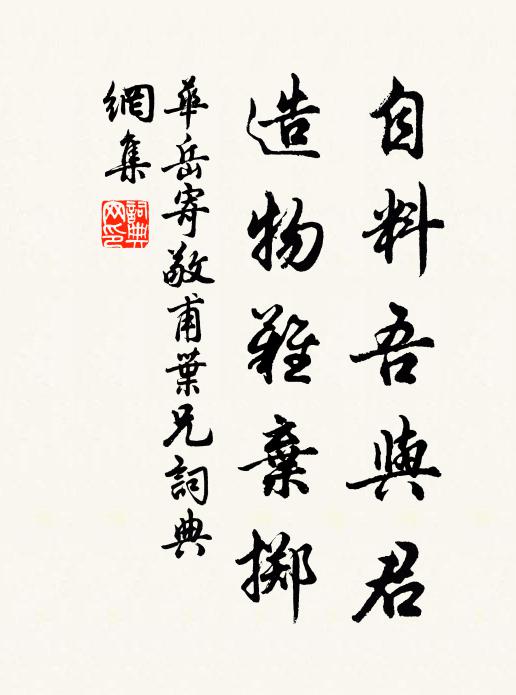 自料吾與君
造物難棄擲
華岳寄敬甫葉兄詞典
網集
詞典
網印